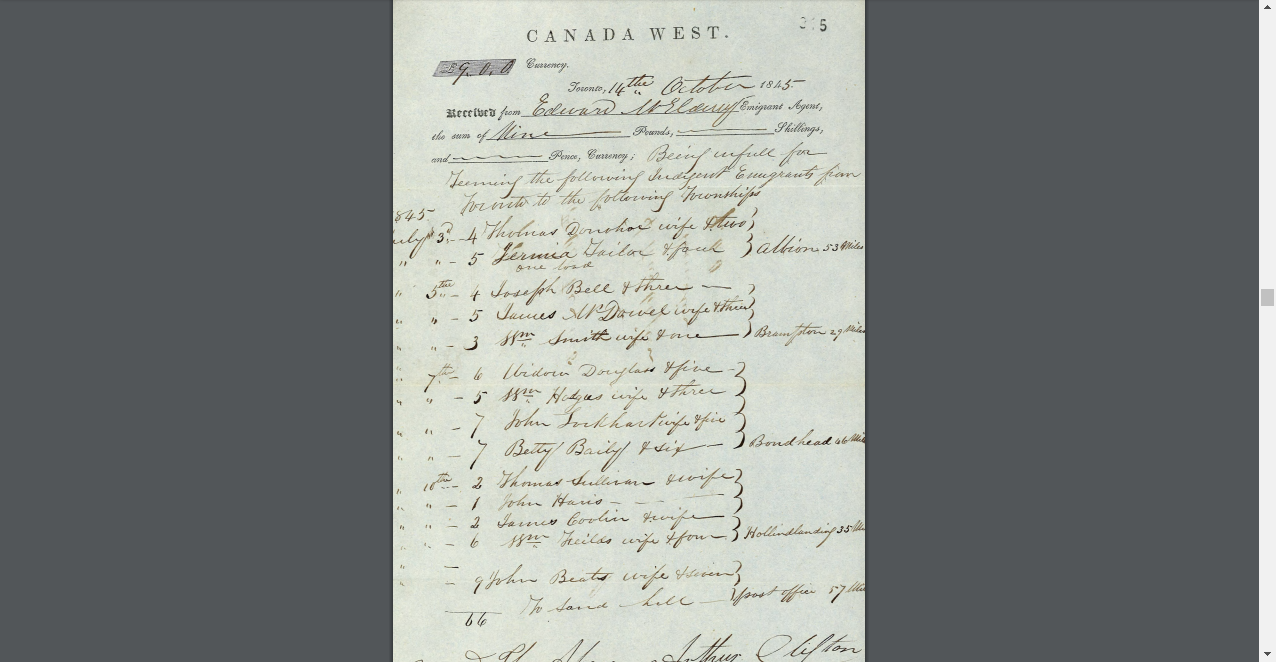 CANADA WEST.
£9.0.0 Currency.
Toronto, 14th October 1845
Received from Edward McElderry Emigrant Agent,
the sum of Nine Pounds, Shillings,
and Pence, Currency; Being in full for
Teeming the following Indigent Emigrants from
Toronto to the following Townships
1845
July 3rd - 4 Thomas Donohoe wife & two
" " - 5 Jermia Tailor & four } Albion 53 Miles
one load
" 5th - 4 Joseph Bell & three —
" " - 5 James McDowel wife & three
" " - 3 Wm Smith wife & one } Brampton 29 Miles
" 7th - 6 Widow Douglass & five -
" " - 5 Wm Hodges wife & three
" " - 7 John Lockhart wife & five
" " - 7 Betty Baily & six — } Bondhead 46
" 10th - 2 Thomas Sullivan & wife
" " - 1 John Haris - - -
" " - 2 James & wife
" " - 6 Wm Feilds wife & four } Hollindlanding 35
" - 9 John Beats wife & seven
66 To Sand hill — } post office 57
Arthur Clifton